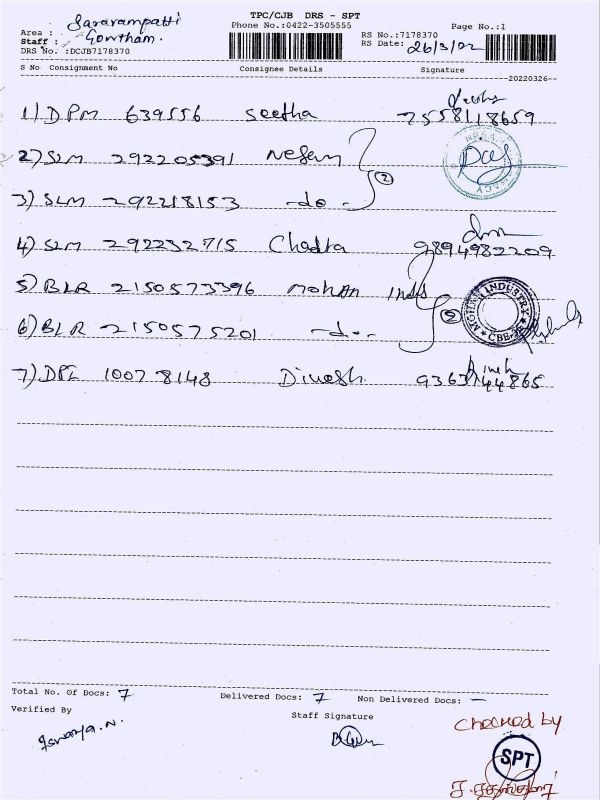 TPC/CJB DRS - SPT
Phone No.:0422-3505555
Page No.:1
Area : Saravampatti
Staff : Gowtham.
DRS No. :DCJB7178370
RS No.:7178370
RS Date: 26/3/22
S No Consignment No Consignee Details Signature
20220326
1) DPM 639556 Seetha 7558118659
2) SLM 292205391 (2)
3) SLM 292218153 -do-
4) SLM 292232715 9894982209
5) BLR 2150573396 Mohan Inds
MOHAN INDUSTRY
CBE
6) BLR 2150575201 -do-
7) DPI 10078148 Dinesh 9363144865
Total No. Of Docs: 7 Delivered Docs: 7 Non Delivered Docs: -
Verified By
Staff Signature
Checked by
SPT